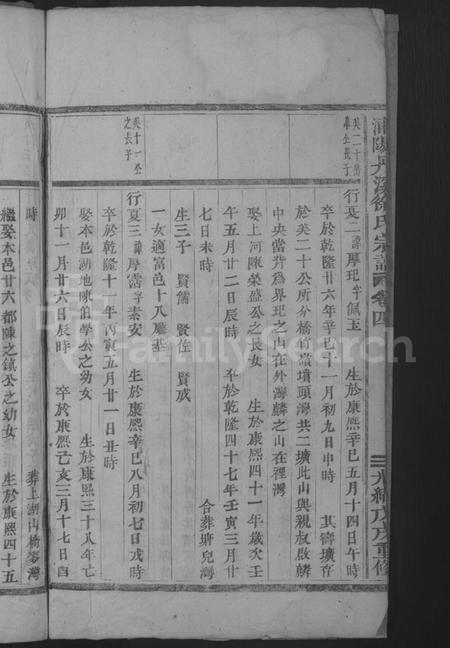 浦陽丹溪徐氏宗譜 卷四 光緒戊戌重修
英二十公
長子
行夏二諱厚玘字佩玉 生於康熙辛巳五月十四日午時
卒於乾隆廿六年辛巳十一月初九日申時 其壽壙存
於英二十公所分橋竹灣墳頭灣共二壙此山與親叔啟麟
中央當背爲界玘之山在外灣麟之山在裡灣
娶上河陳榮盛公之長女 生於康熙四十一年歲次壬
午五月廿二日辰時 卒於乾隆四十七年壬寅三月廿
七日未時 合葬塘兒灣
生三子 賢儒 賢佐 賢戒
一女適富邑十八廳基
英十一公
之長子
行夏三諱厚霑字素安 生於康熙辛巳八月初七日戌時
卒於乾隆十一年丙寅五月廿一日丑時
娶本邑湖地陳伯學公之幼女 生於康熙三十八年
卯十一月廿六日辰時 卒於康熙己亥三月十七日酉
時 葬上湖山橋
繼娶本邑廿六都陳之鎮公之幼女 生於康熙四十五
FamilySearch